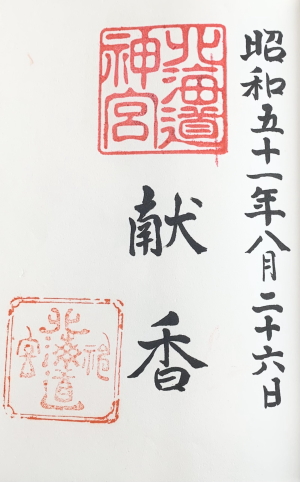 昭和五十一年八月二十六日
北海道
神宮
献香
北海道
神宮